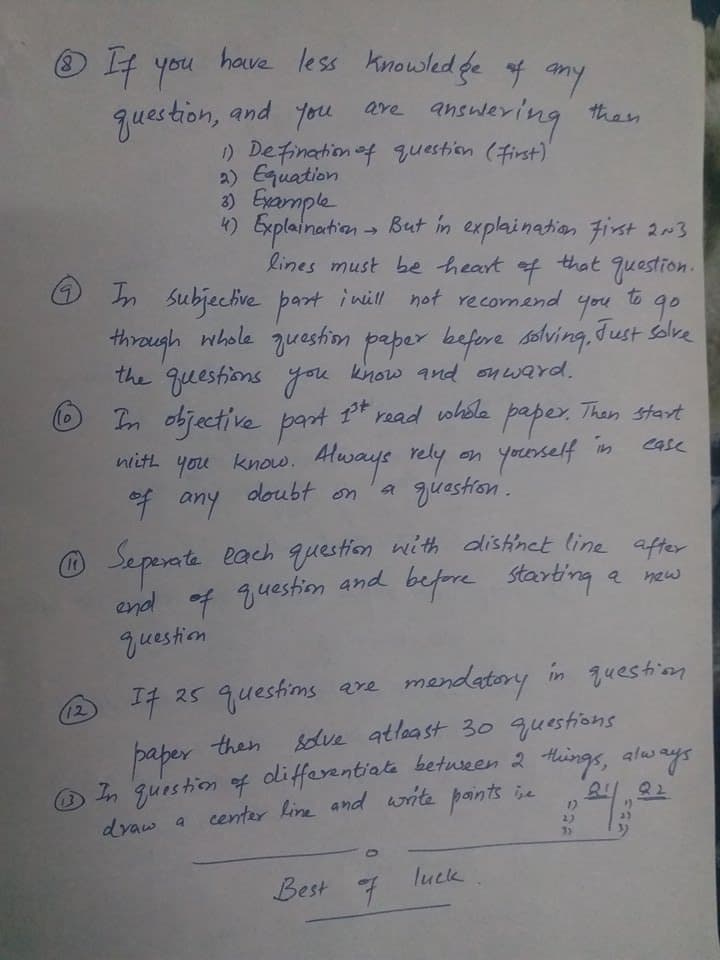 ⑧ If you have less Knowledge of any
question, and you are answering then
1) Defination of question (first)
2) Equation
3) Example
4) Explaination → But in explaination first 2~3
lines must be heart of that question.
⑨ In subjective part i will not recomend you to go
through whole question paper before solving. Just solve
the questions you know and onward.
⑩ In objective part 1st read whole paper. Then start
with you know. Always rely on yourself in case
of any doubt on a question.
⑪ Seperate each question with distinct line after
end of question and before starting a new
question
⑫ If 25 questions are mendatory in question
paper then solve atleast 30 questions
⑬ In question of differentiate between 2 things, always
draw a center line and write points i,e
Q1 | Q2
1) | 1)
2) | 2)
3) | 3)
Best of luck.